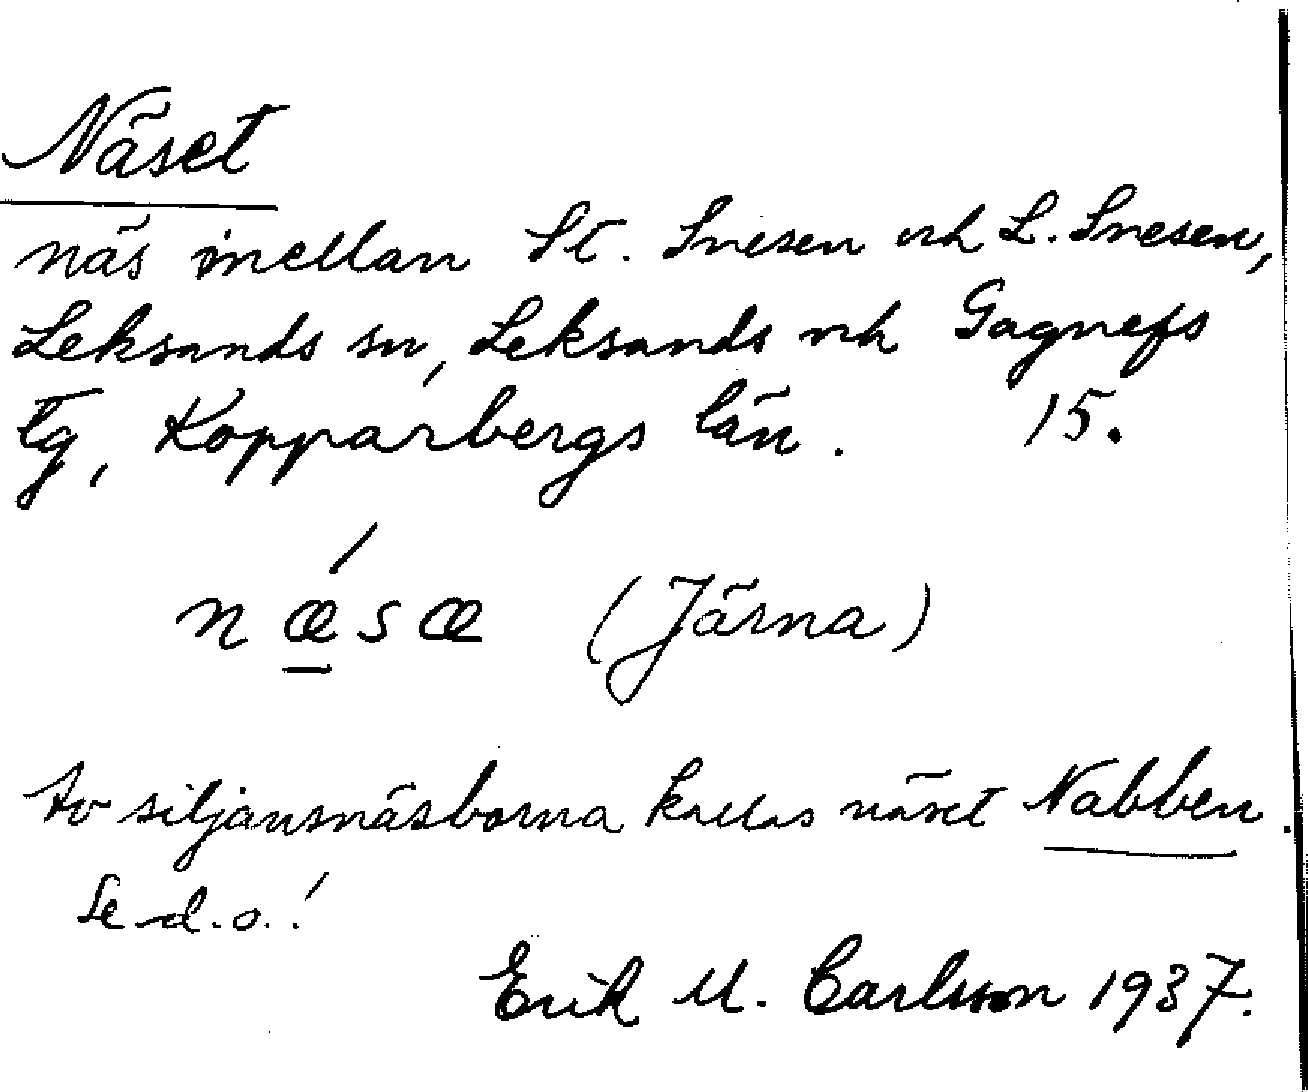 Näset
näs mellan St. Snesen och L. Snesen,
Leksands sn, Leksands och Gagnefs
tg, Kopparbergs län. 15.
nǽ̱sæ (Järna)
Av siljansnäsborna kallas näset Nabben.
Se d.o.!
Erik M. Carlsson 1937.